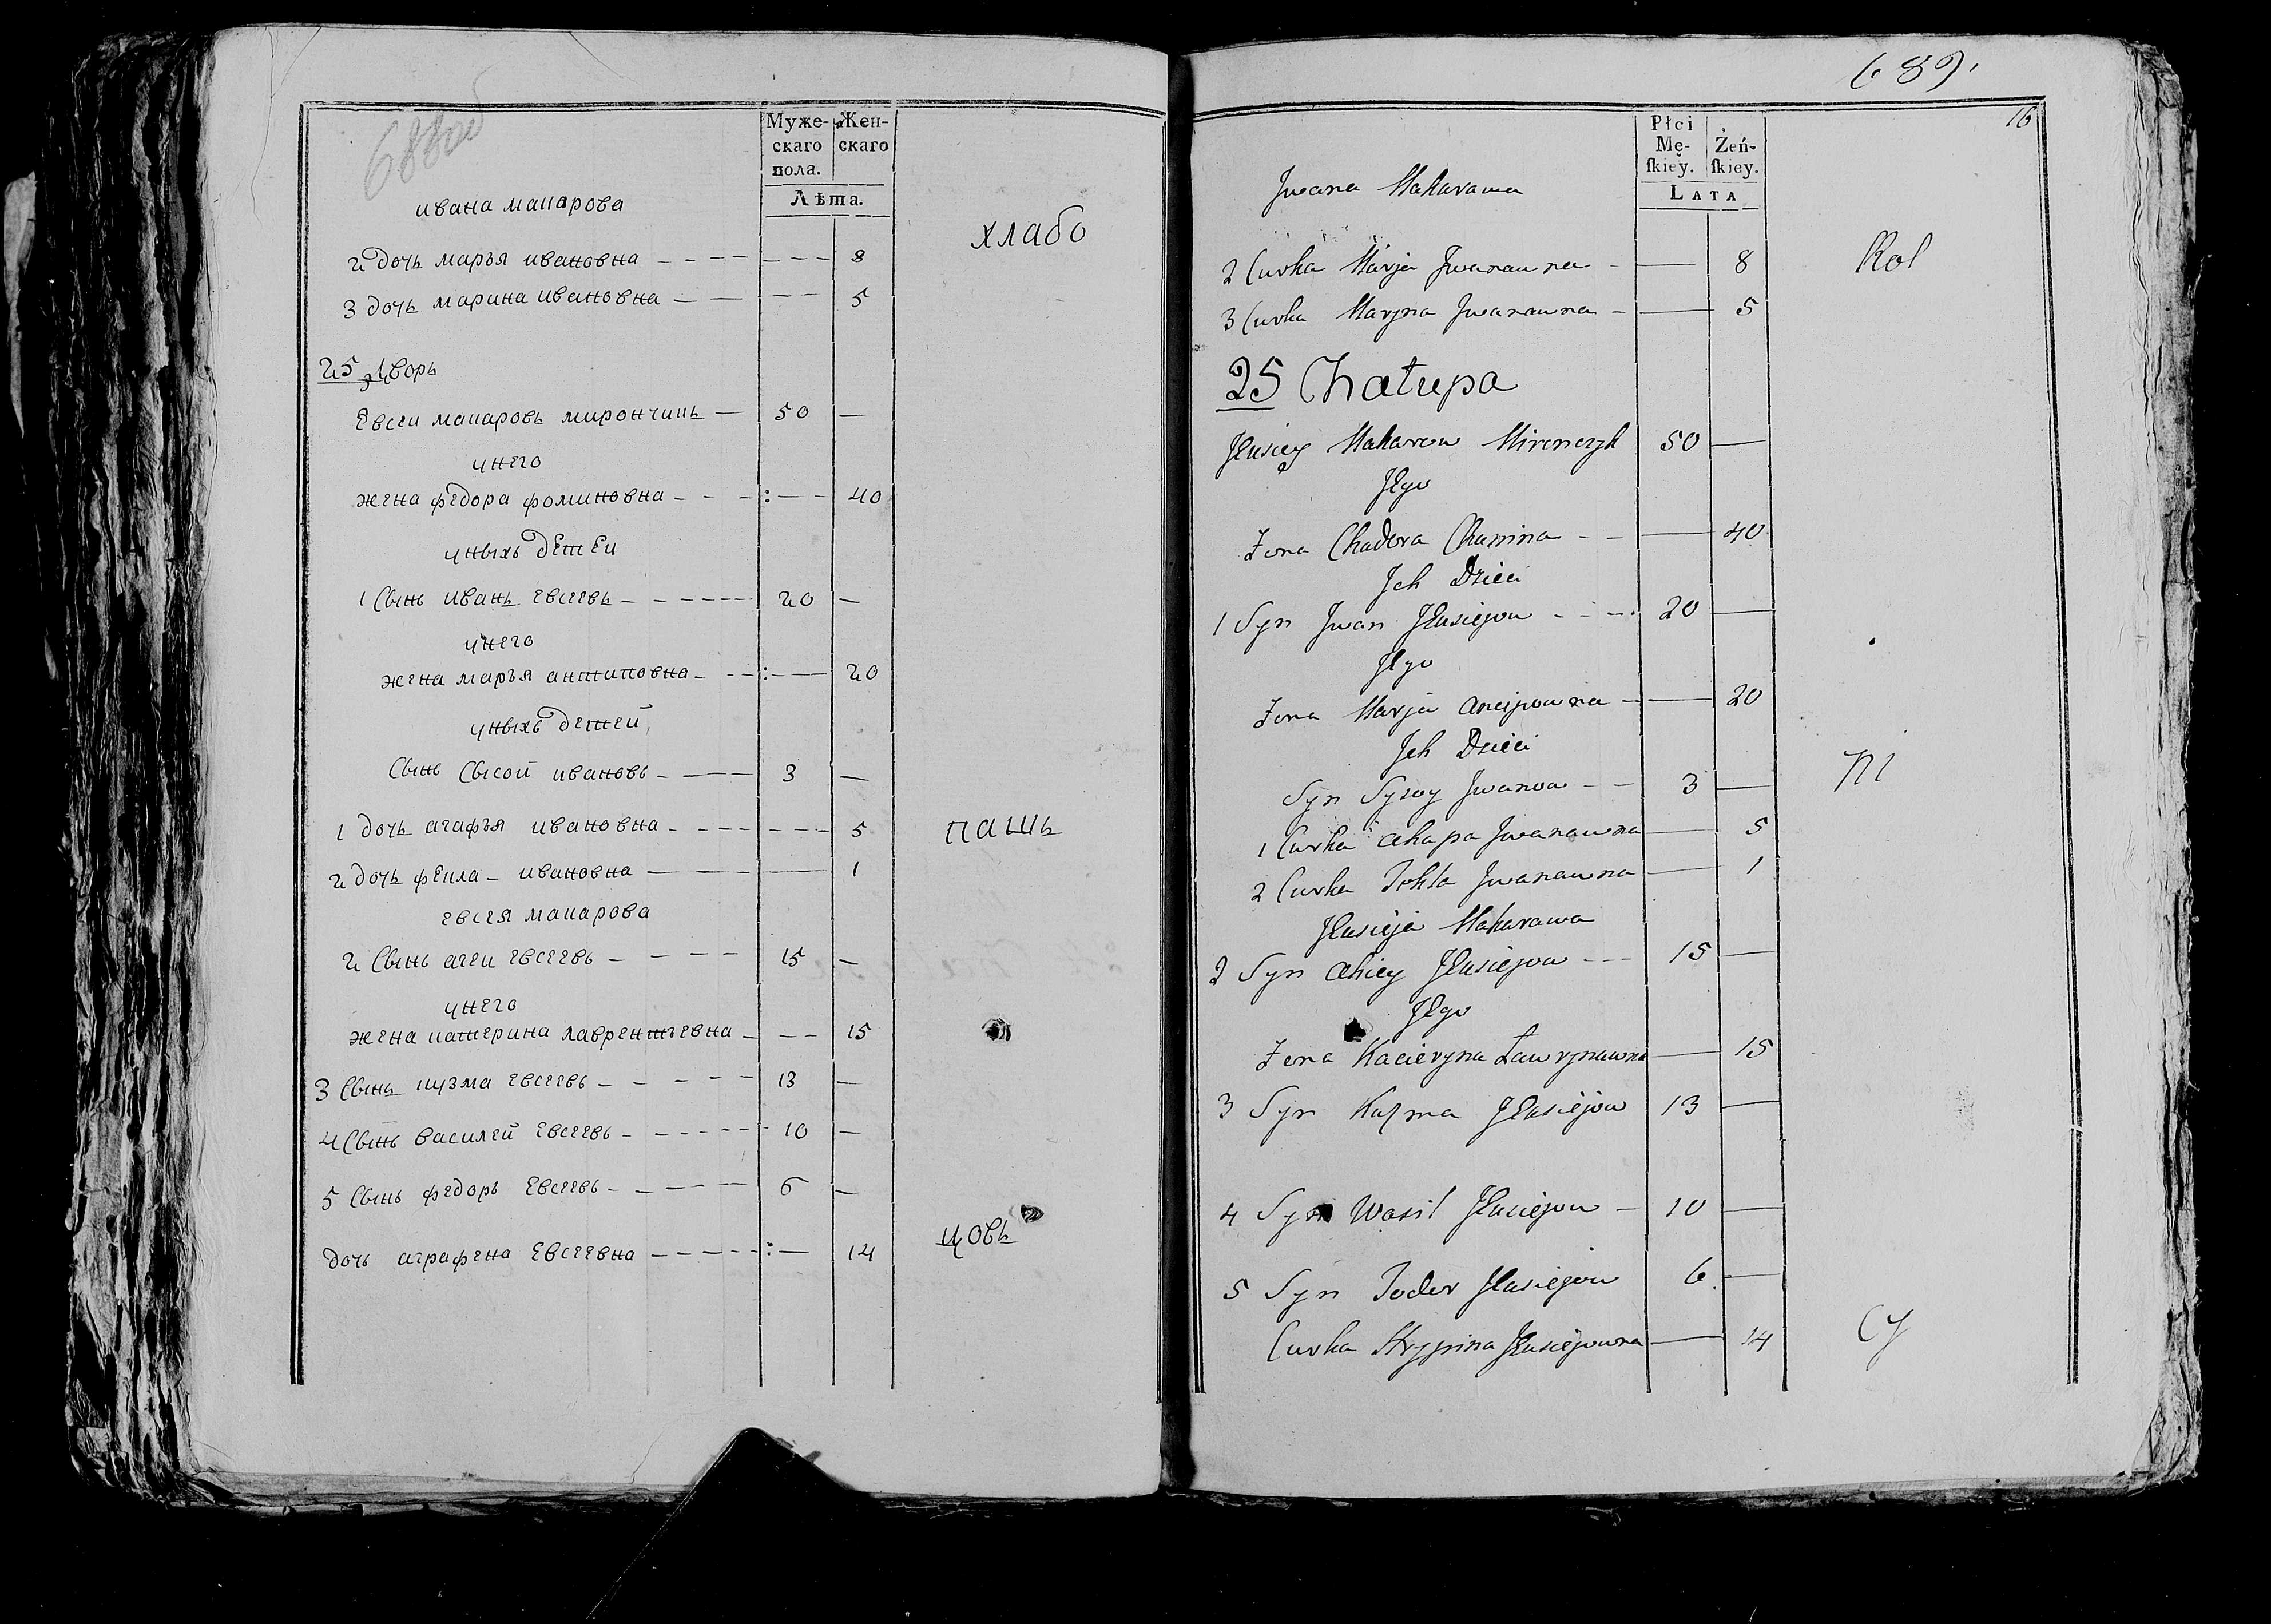 688об
Муже-
скаго
пола.
Жен-
скаго
Лѣта.
ивана макарова
хлабо
2 дочь марья ивановна - - - - - - - 8
3 дочь марина ивановна - - - - 5
25 дворь
Евсеи макаровь мирончикь - 50 -
унего
жена федора фоминовна - - - : - - 40
уныхь детеи
1 Сынь ивань евсеевь - - - - - - 20 -
унего
жена марья антиповна - - - : - - 20
уныхь детей
Сынь Сысой ивановь - - - 3 -
1 дочь агафья ивановна - - - - - - - 5
пашь
2 дочь фекла - ивановна - - - - 1
евсея макарова
2 Сынь агеи евсеевь - - - - 15 -
унего
жена катерина лаврентьевна - - - 15
3 Сынь кузма евсеевь - - - - - 13 -
4 Сынь василей евсеевь - - - - - - 10 -
5 Сынь федорь Евсеевь - - - - - 6 -
цовь
дочь аграфена Евсеевна - - - - - : - 14
689.
16
Płci
Mę-
ſkiey.
Żeń-
ſkiey.
LATA
Jwana Makarawa
2 Curka Marja Jwanawna - — 8
Rol
3 Curka Maryna Jwanawna - — 5
25 Chałupa
Jewsiey Makarow Mironczyk 50 —
Jego
Żona Chadora Chamina - - — 40
Jch Dzieci
1 Syn Jwan Jewsiejow - - - - 20 —
Jego
Żona Marja Ancipowna - — 20
Jch Dzieci
Syn Sysoy Jwanow - - 3 —
ni
1 Curka Ahapa Jwanawna — 5
2 Curka Tekla Jwanawna — 1
Jewsieja Makarawa
2 Syn Ahiey Jewsiejow - - - 15 —
Jego
Żona Kacieryna Ławrynawna — 15
3 Syn Kuzma Jewsiejow 13 —
4 Syn Wasil Jewsiejow - 10 —
5 Syn Todor Jewsiejow 6 —
Curka Hrypina Jewsiejowna — 14
cy